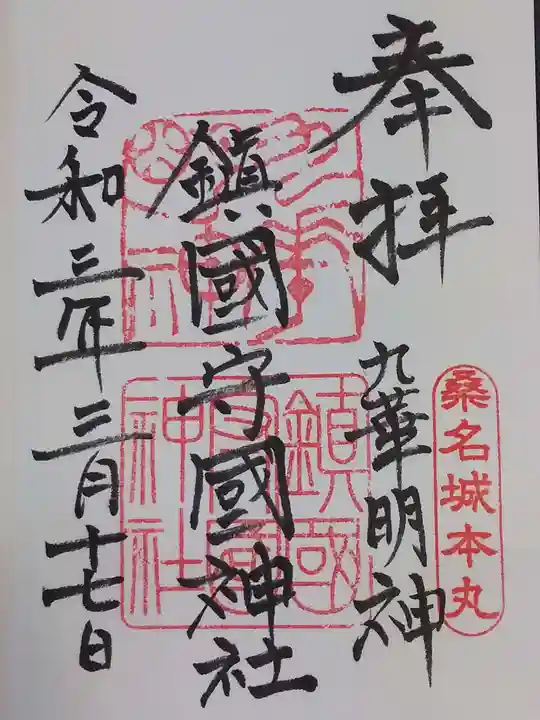 奉拝
桑名城本丸
九華明神
鎮國守國神社
令和三年三月十七日
鎮國
神社